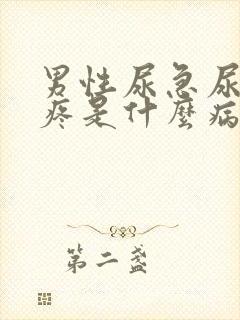 男性尿急尿
疼是什麼病
第二盏